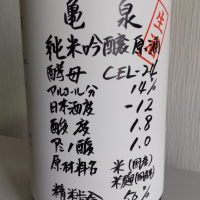 亀泉
生
純米吟醸原酒
酵母 CEL-24
アルコール分 14%
日本酒度 -12
酸度 1.8
アミノ酸 1.0
原材料名 米(国産)
米麹(国産米)
精米歩合 50%